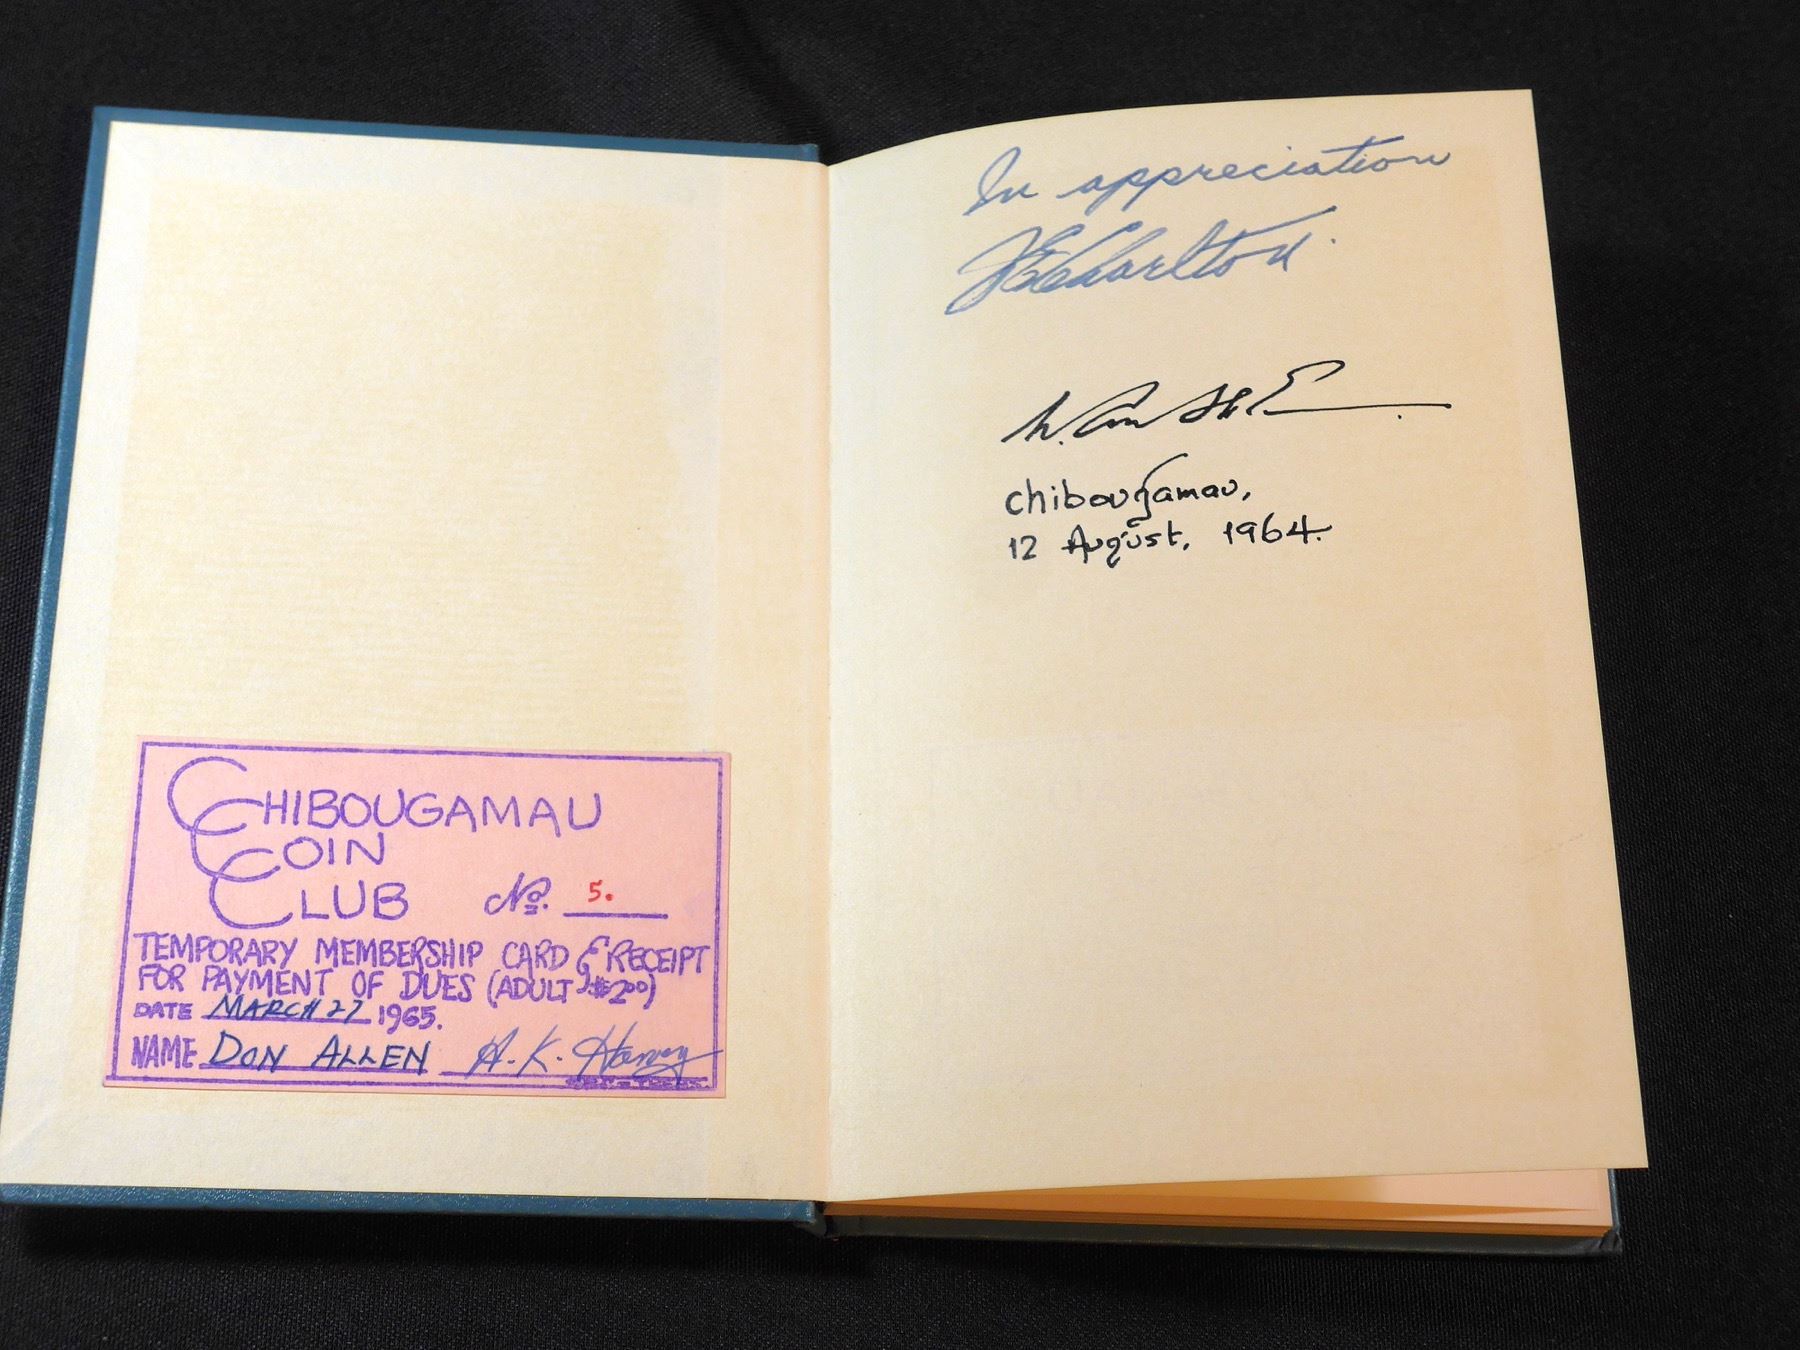 CHIBOUGAMAU
COIN
CLUB No. 5.
TEMPORARY MEMBERSHIP CARD & RECEIPT
FOR PAYMENT OF DUES (ADULT $2.00)
DATE MARCH 27 1965.
NAME DON ALLEN A. K. Harvey
In appreciation
J E Charlton.
Chibougamau,
12 August, 1964.